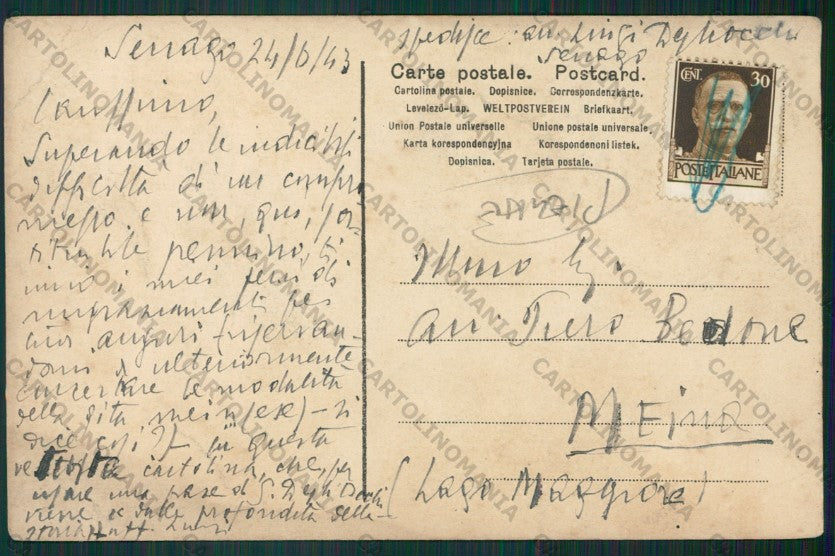 Senago 24/6/43
Carissimo,
Superando le indicibili
difficoltà di un compro
messo e non, qui,
pennino, ti
invio i miei fervidi
ringraziamenti per
auguri - riservan-
domi d'ulteriormente
concertare le modalità
della gita mein(ese) - si
dice così? - in questa
cartolina, che, per
usare una frase di S. Degli Occhi
viene dalle profondità della
Luigi
spedisce: avv. Luigi Degli Occhi
Senago
Carte postale. Postcard.
Cartolina postale. Dopisnice. Correspondenzkarte.
Levelező-Lap. WELTPOSTVEREIN Briefkaart.
Union Postale universelle Unione postale universale
Karta korespondencyjna Korespondenoni listek.
Dopisnica. Tarjeta postale.
CENT. 30
POSTE ITALIANE
avv. Piero Bedone
MEINA
(Lago Maggiore)
CARTOLINOMANIA